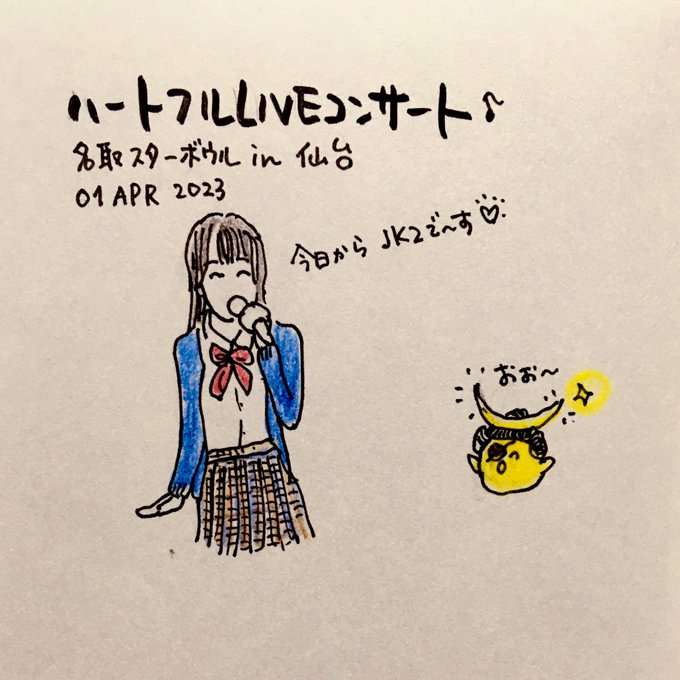 ハートフルLIVEコンサート♪
名取スターボウル in 仙台
01 APR 2023
今日から JK2で〜す♡
おぉ〜